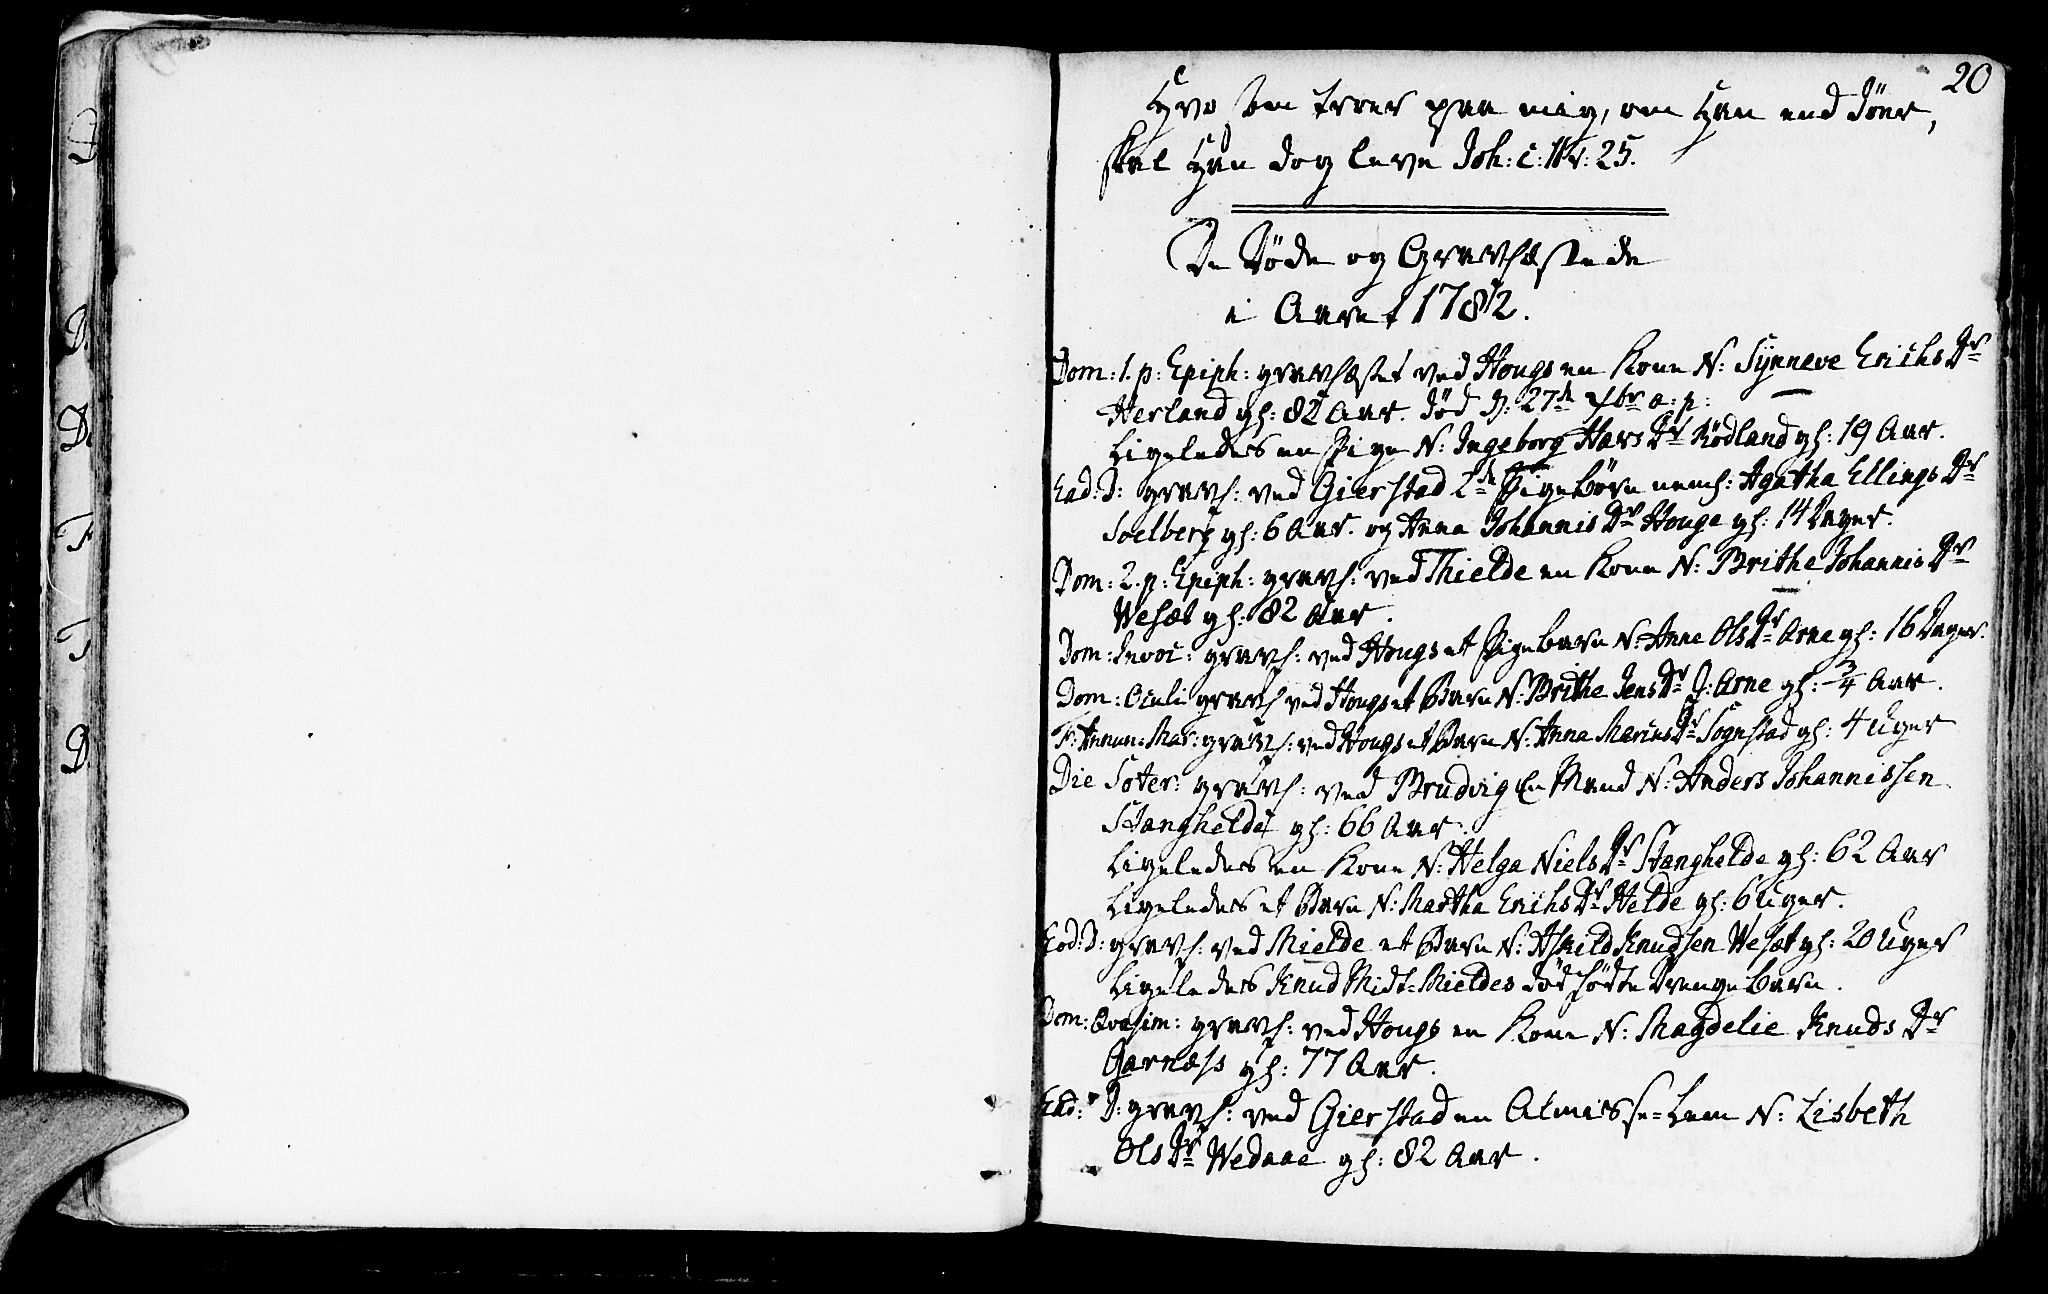 20
Hvo som troer paa mig, om Han end Döer,
skal Han dog leve Joh: c: 11 v: 25.
De Döde og Gravfæstede
i Aaret 1782.
Dom: 1. p: Epiph: gravfæstet ved Hougs en Kone N: Synneve Erichs Dr
Herland gl: 82 Aar. död D: 27de Xbr a: p:
Ligeledes en Pige N: Ingeborg Hars Dr Rödland gl: 19 Aar.
Ead: D: gravf: ved Gierstad 2de Pigebörn neml: Agatha Ellings Dr
Soelberg gl: 6 Aar. og Anna Johannis Dr Houge gl: 14 Dager.
Dom: 2. p: Epiph: gravf: ved Thielde en Kone N: Brithe Johannis Dr
Wesæt gl: 82 Aar.
Dom: Invoc: gravf: ved Hougs et Pigebarn N: Anne Ols Dr Arne gl: 16 Dager.
Dom: Oculi gravf ved Hougs et Barn N: Brithe Jens Dr Arne gl: 3/4 Aar.
F: Annun: Mar: gravf: ved Hougs et Barn N: Anna Marius Dr Sognstad gl: 4 Uger
Die Soter: gravf: ved Brudvig En Mand N: Anders Johannissen
Stanghelde gl: 66 Aar.
Ligeledes en Kone N: Helga Niels Dr Stanghelde gl: 62 Aar
Ligeledes et Barn N: Martha Erichs Dr Helde gl: 6 Uger.
Eod: D: gravf: ved Mielde et Barn N: Askild Knudsen Wesæt gl: 20 Uger
Ligeledes Knud Midt-Mieldes död födte Drengebarn.
Dom: Qvasim: gravf: ved Hougs en Kone N: Magdelie Knuds Dr
Garnæss gl: 77 Aar.
Ead: D: gravf: ved Gierstad en Almisse-Lem N: Lisbeth
Ols Dr Wedaae gl: 82 Aar.